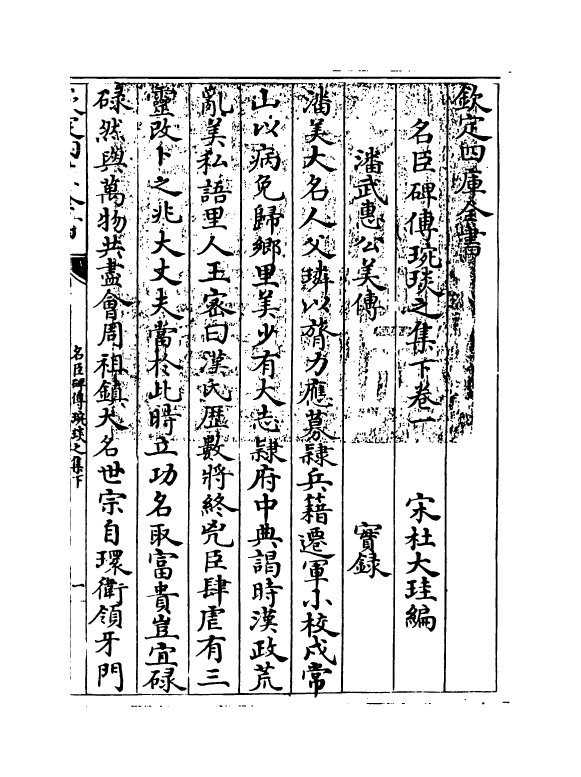 欽定四庫全書
名臣碑傳琬琰之集下卷一
宋杜大珪編
潘武惠公美傳　實録
潘美大名人父璘以膂力應募隷兵藉遷軍小校戍常
山以病免歸鄉里美少有大志隷府中典謁時漢政荒
亂美私語里人王宻曰漢氏歴數将終兇臣肆虐有三
靈改卜之兆大丈夫當於此時立功名取富貴豈宜碌
碌然與萬物共盡會周祖鎮大名世宗自環衛領牙門
名臣碑傳琬琰之集下
一